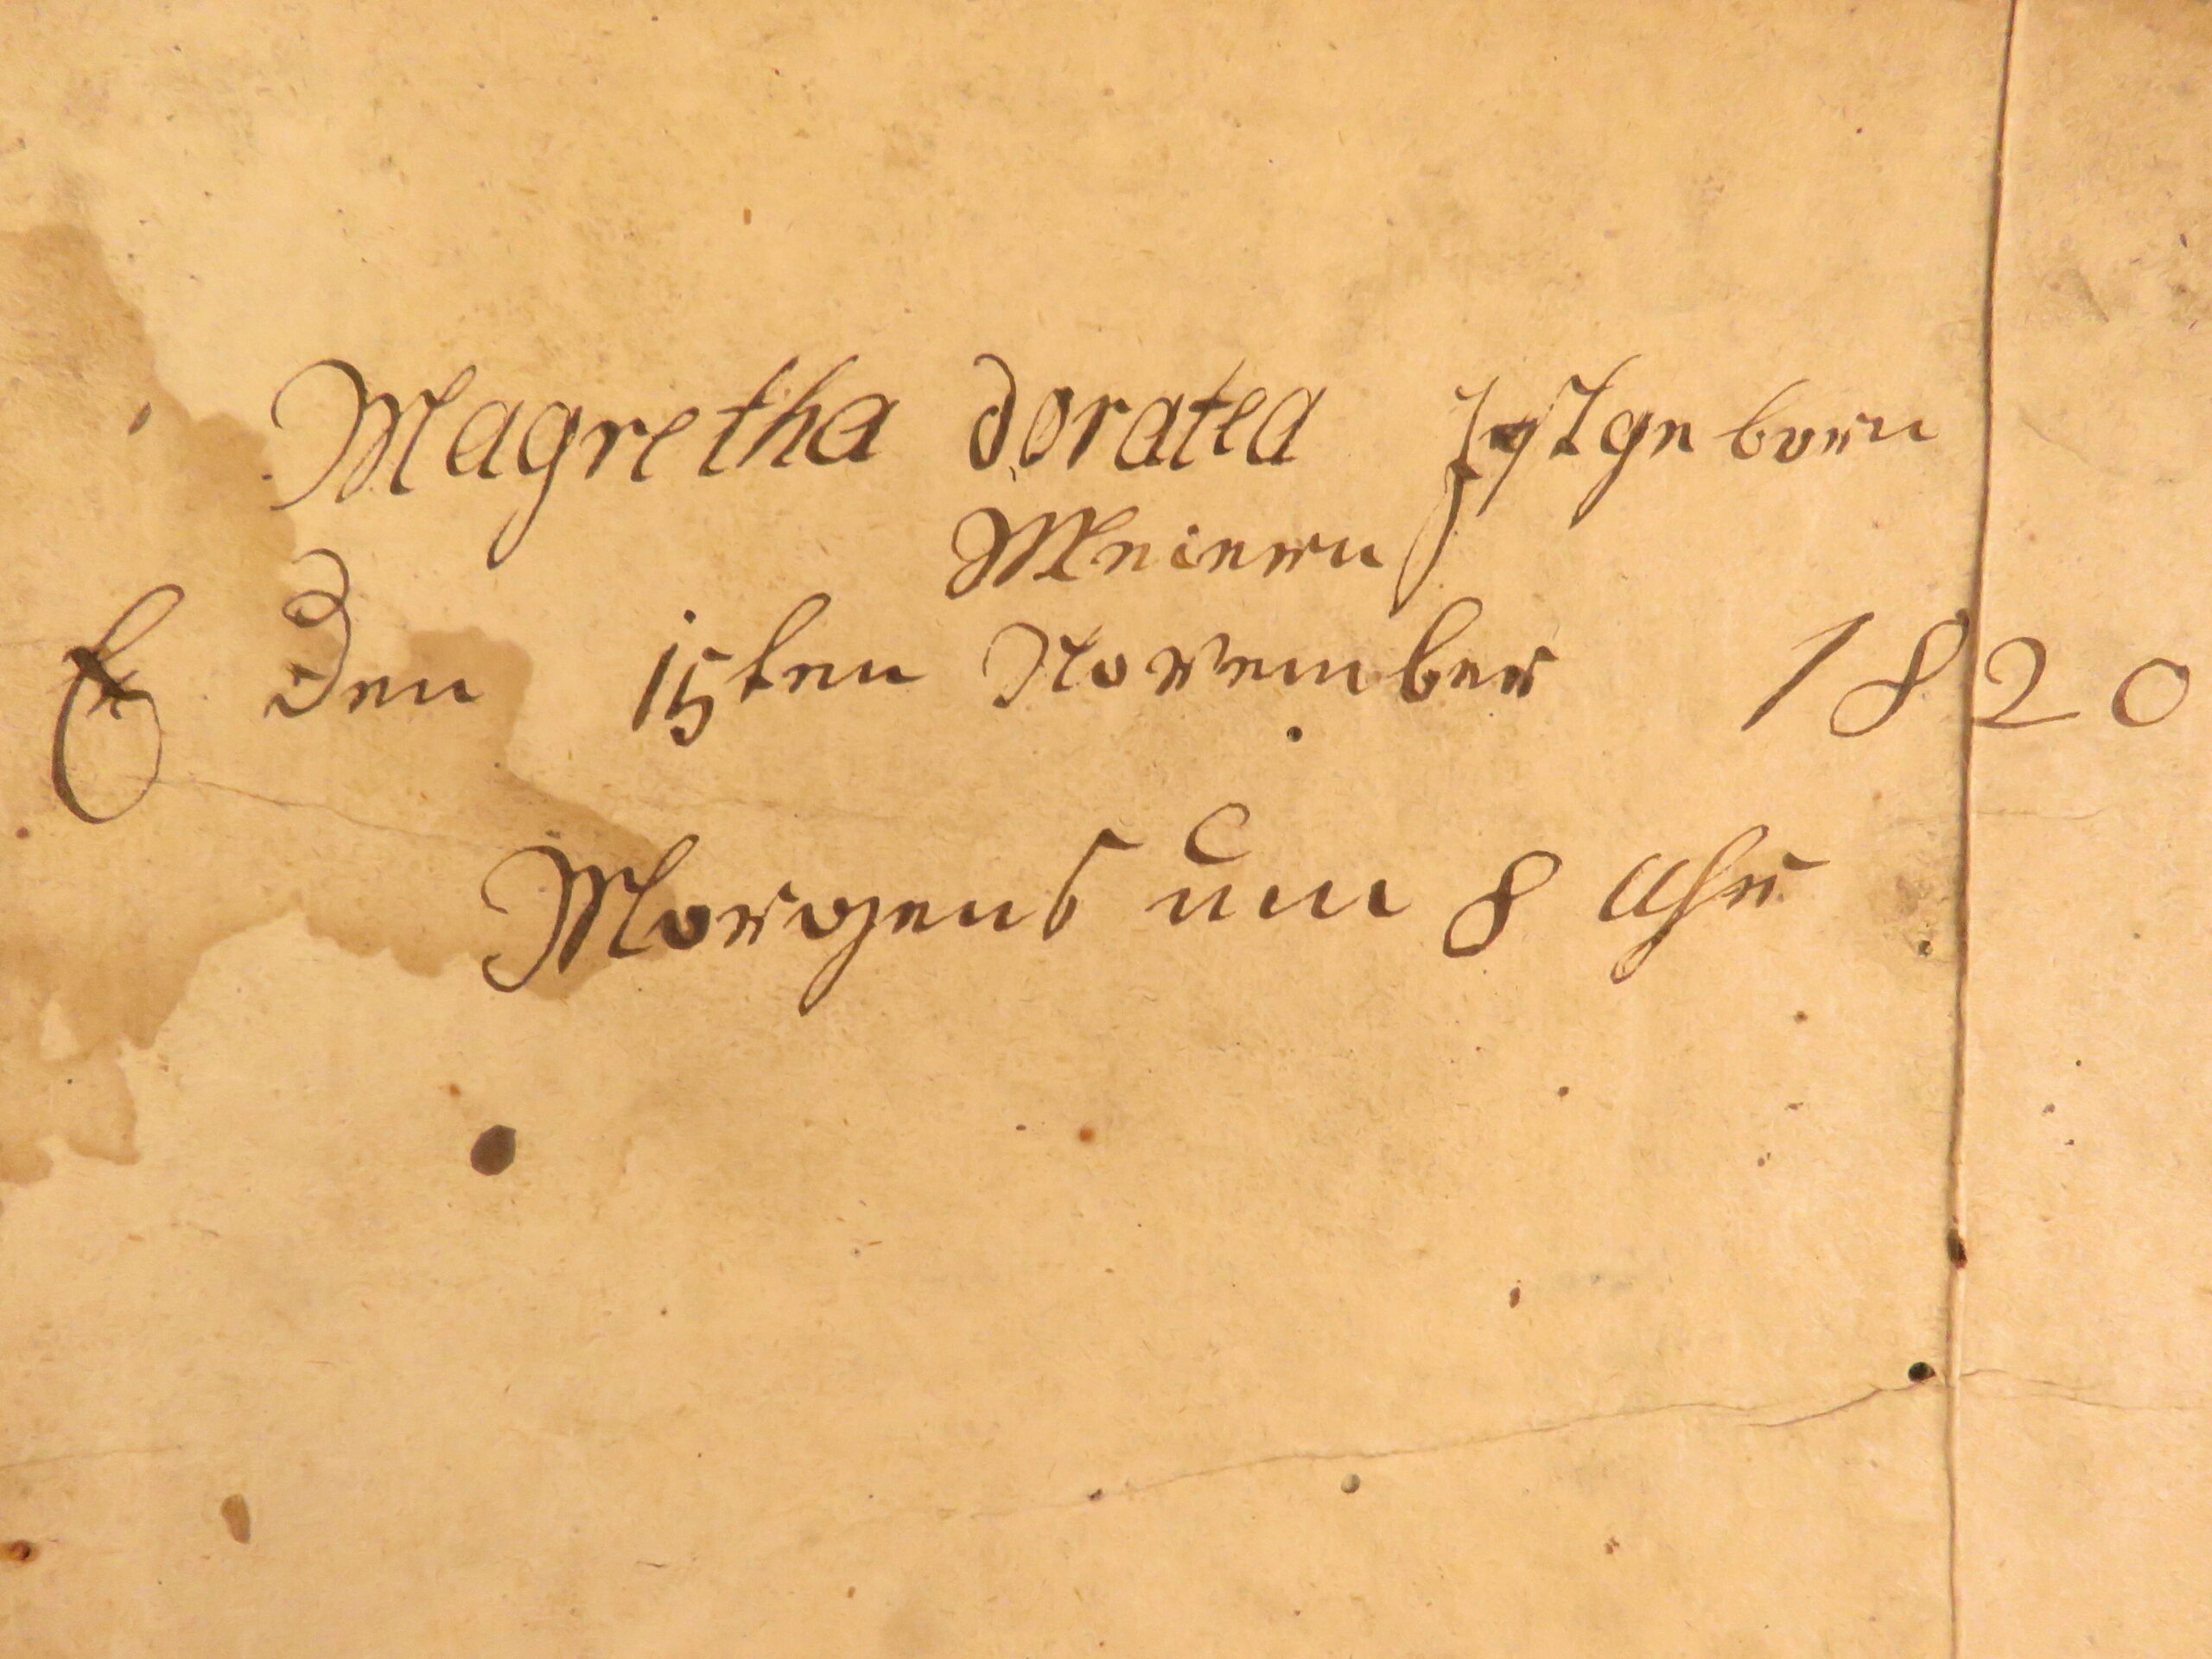 Magretha doratea Jst geborn
Meiern
Den 15ten November 1820
Morgens um 8 Uhr